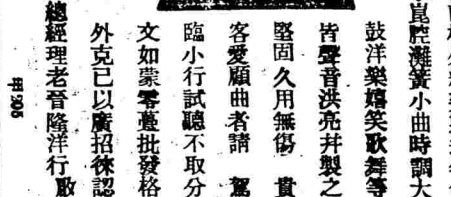 崑腔灘簧小曲時調大
鼓洋樂嬉笑歌舞等
皆聲音洪亮幷製之
堅固久用無傷　貴
客愛顧曲者請　駕
臨小行試聽不取分
文如蒙零躉批發格
外克已以廣招徠認
總經理老晉隆洋行啟
甲305